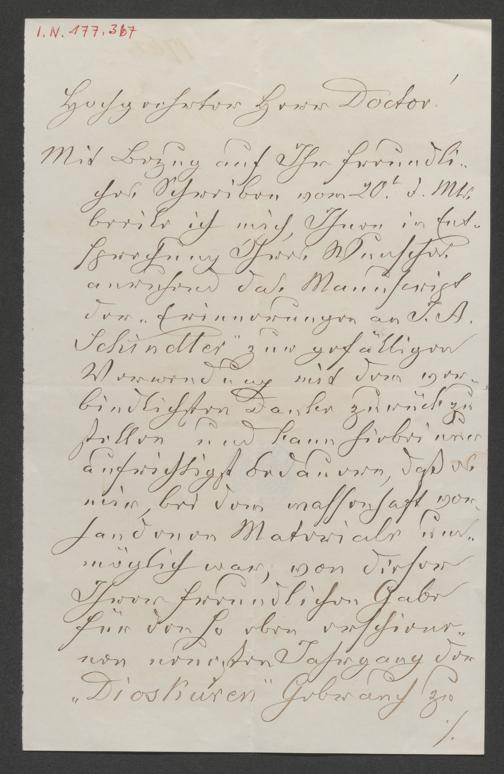 I. N. 177.367
Hochgeehrter Herr Doctor!
Mit Bezug auf Ihr freundli-
ches Schreiben vom 20t. d. Mts.
beeile ich mich, Ihnen in Ent-
sprechung Ihres Wunsches
anruhend das Manuscript
der „Erinnerungen an J. A.
Schindler" zur gefälligen
Verwendung mit dem ver-
bindlichsten Danke zurückzu
stellen und kann hiebei nur
aufrichtigst bedauern, daß es
mir, bei dem massenhaft vor-
handenen Materiale un-
möglich war, von dieser
Ihrer freundlichen Gabe
für den so eben erschiene-
nen neuesten Jahrgang der
„Dioskuren" Gebrauch zu
./.